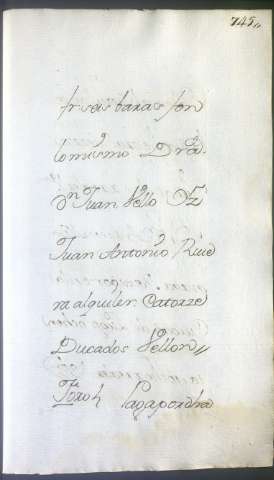 745,,
tr seis baras son
lo mismo D.ra
D.n Juan Vello Fz
Juan Antonio Rive
ra alquiler Catorze
Ducados Vellon,,
Paga por dha